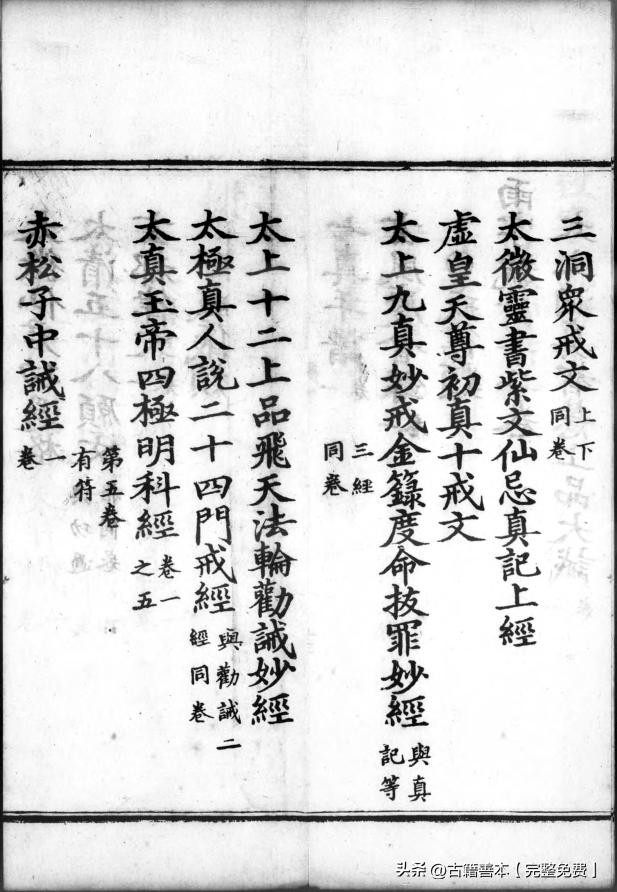 三洞衆戒文上下同卷
太微靈書紫文仙忌真記上經
虛皇天尊初真十戒文
太上九真妙戒金籙度命拔罪妙經與真記等
三經同卷
太上十二上品飛天法輪勸誡妙經
太極真人說二十四門戒經與勸誡二經同卷
太真玉帝四極明科經卷一之五
第五卷有符
赤松子中誡經一卷
头条 @古籍善本【完整免费】